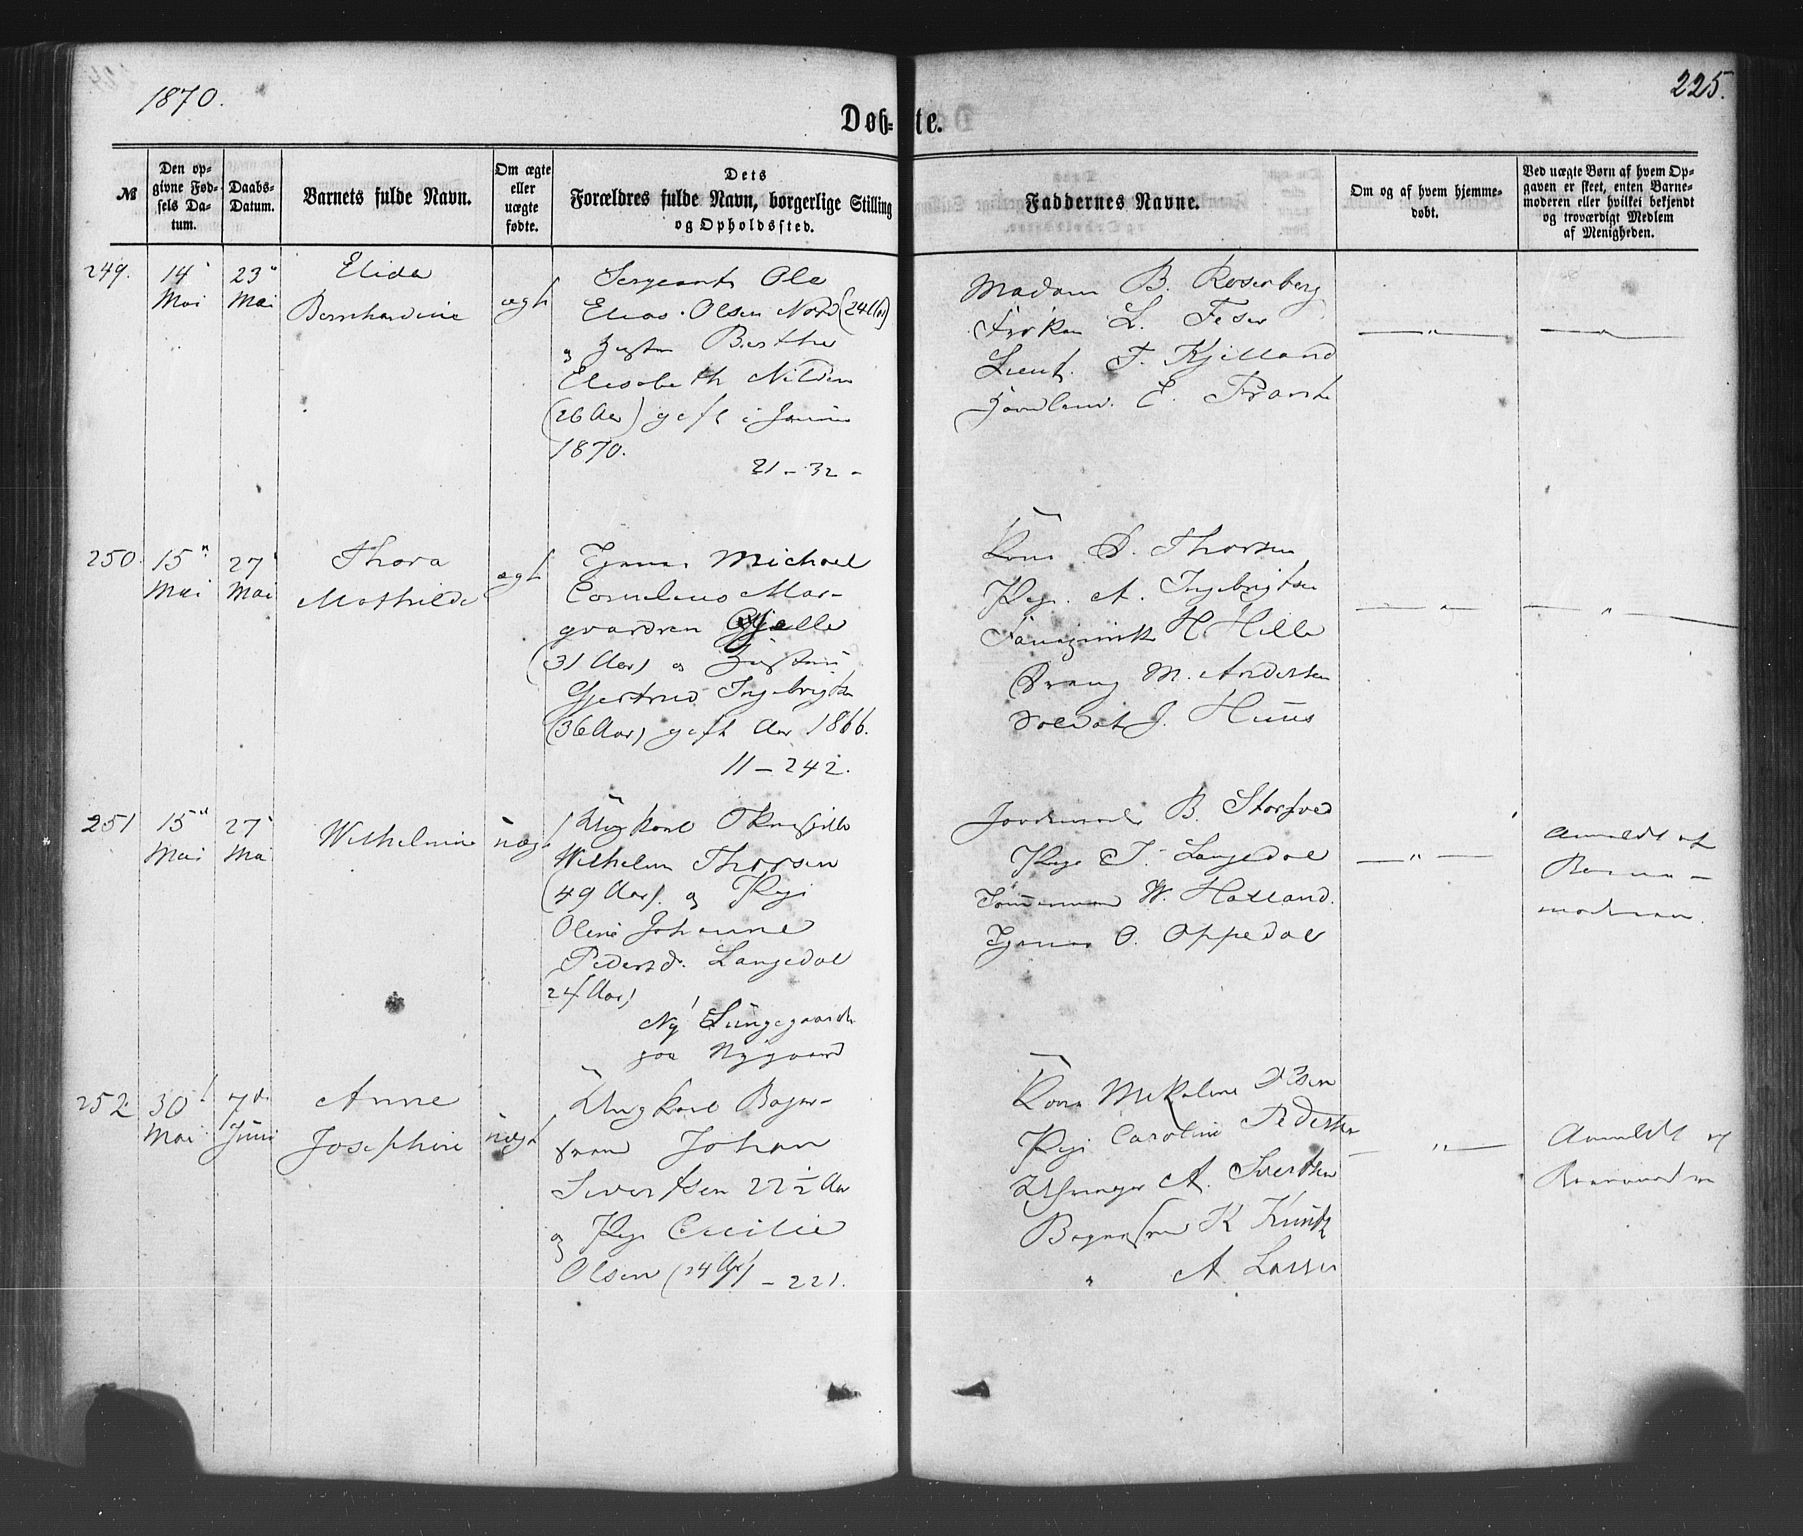 1870.
225.
Døb-te.
№
Den opgivne Fødsels Datum.
Daabs-Datum.
Barnets fulde Navn.
Om ægte eller uægte fødte.
Dets
Forældres fulde Navn, borgerlige Stilling
og Opholdssted.
Faddernes Navne.
Om og af hvem hjemmedøbt.
Ved uægte Børn af hvem Opgaven er skeet, enten Barnemoderen eller hvilket bekjendt og troværdigt Medlem af Menigheden.
249. 14 Mai 23 Mai
Elida
Bernhardine
ægt
Sergeant Ole
Elias Olsen Nord (24 Aar)
og Hustru Berthe
Elisabeth Nilsen
(26 Aar) gift i
1870.
21 - 32 -
Madam B. Rosenberg
Frøken L.
Lieut. T. Kjelland
E.
250. 15 Mai 27 Mai
Thora
Mathilde
ægt
Michael
Cornelius Mar-
qvardsen Gjelle
(31 Aar) og Hustru
Gjertrud Ingebrigtsen
(36 Aar) gift Aar 1866.
11 - 242.
Kone Thorsen
Pige A. Ingebrigtsen
H Hille
Dreng M. Andersen
Soldat J. Huus
251 15 Mai 27 Mai
Wilhelmine
uægt
Ungkarl
Wilhelm Thorsen
(49 Aar). og Pige
Oline Johanne
Pedersd. Langedal
24 Aar)
Ny Lungegaarden
paa Nygaard
B. Storsved
Pige Langedal
Tømmermand W. Hatland.
O. Oppedal
Anmeldt af
Barne-
moderen.
252. 30 Mai 7de Juni
Anne
Josephine
uægt
Ungkarl Bager-
svend Johan
Sivertsen 22½ Aar
og Pige Cecilie
Olsen (24 Aar) - 221.
Kone Mikaline Olsen
Pige Caroline Pedersen
A. Sivertsen
Bagersvend K
" A. Larsen
Anmeldt af